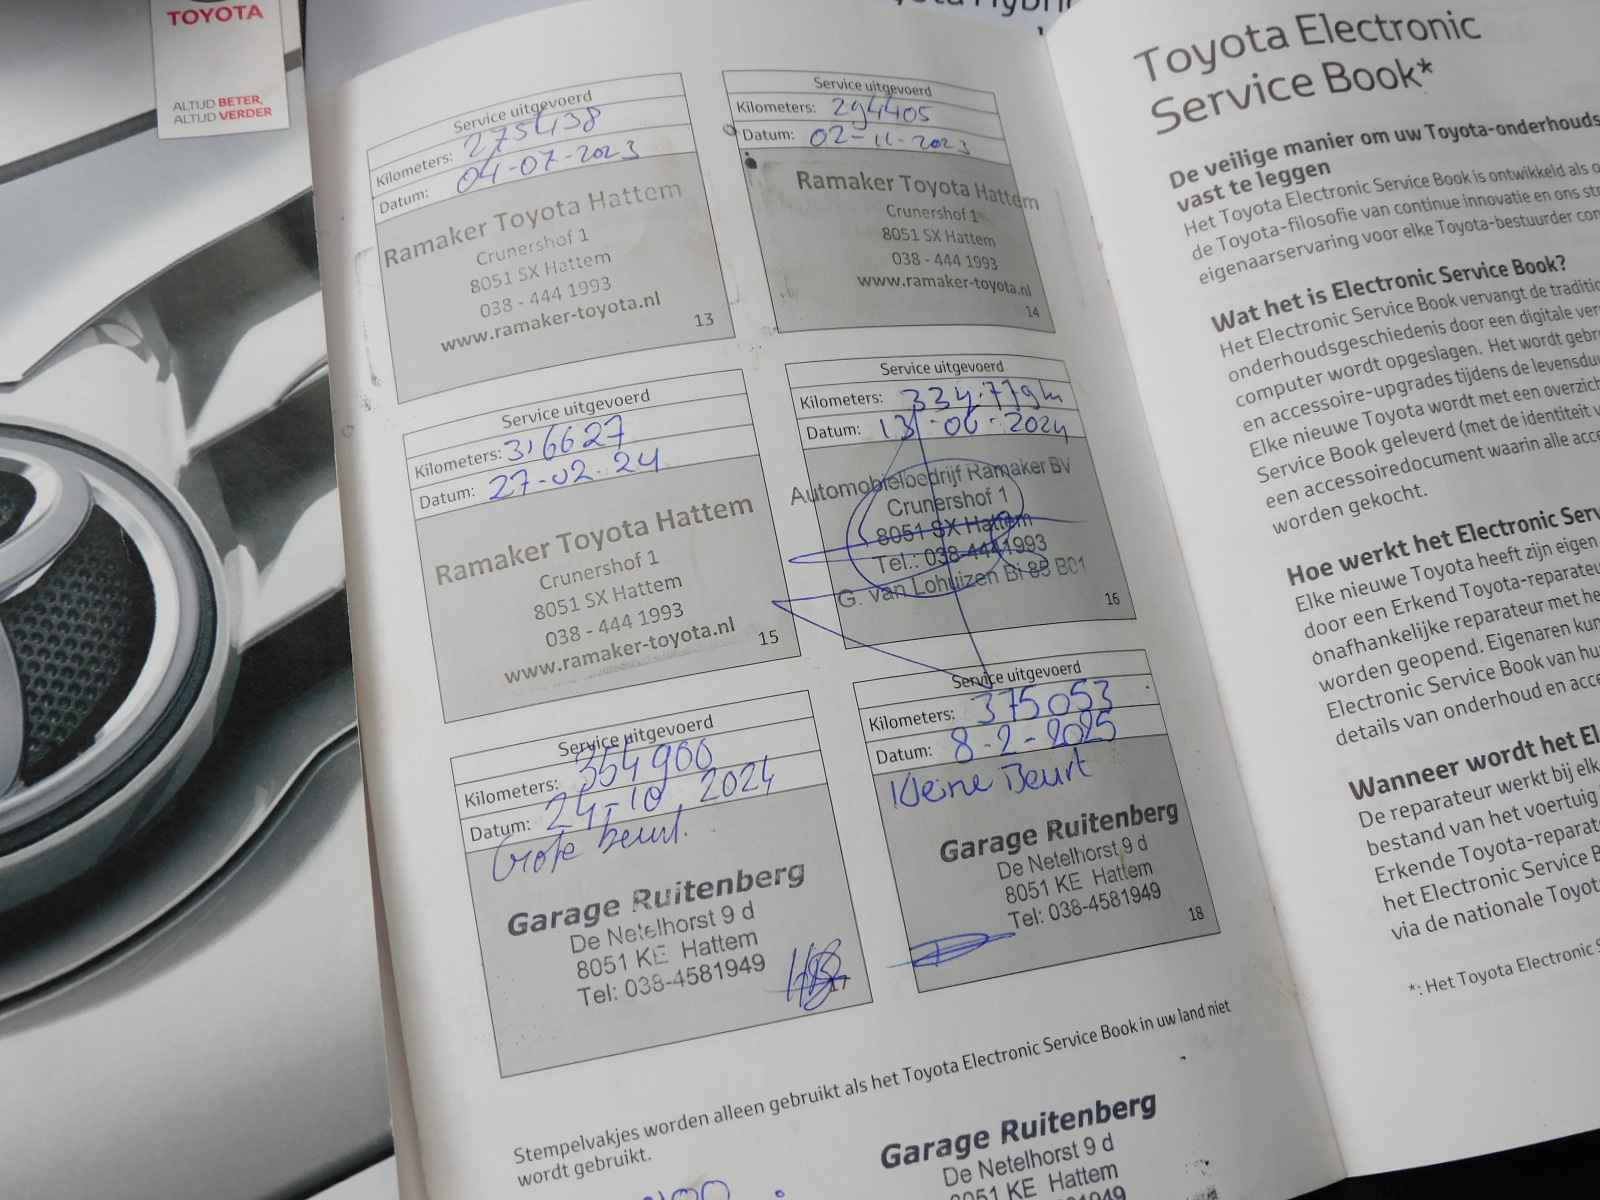 TOYOTA
ALTIJD BETER,
ALTIJD VERDER
Service uitgevoerd
Kilometers: 275438
Datum: 04-07-2023
Ramaker Toyota Hattem
Crunershof 1
8051 SX Hattem
038 - 444 1993
www.ramaker-toyota.nl
13
Service uitgevoerd
Kilometers: 294405
Datum: 02-11-2023
Ramaker Toyota Hattem
Crunershof 1
8051 SX Hattem
038 - 444 1993
www.ramaker-toyota.nl
14
Service uitgevoerd
Kilometers: 316627
Datum: 27-02-24
Ramaker Toyota Hattem
Crunershof 1
8051 SX Hattem
038 - 444 1993
www.ramaker-toyota.nl
15
Service uitgevoerd
Kilometers: 334.779
Datum: 13-06-2024
Automobielbedrijf Ramaker BV
Crunershof 1
8051 SX Hattem
Tel.: 038-4441993
G. van Lohuizen
16
Service uitgevoerd
Kilometers: 354900
Datum: 24-10, 2024
Grote beurt.
Garage Ruitenberg
De Netelhorst 9 d
8051 KE Hattem
Tel: 038-4581949
17
Service uitgevoerd
Kilometers: 375053
Datum: 8-2-2025
Kleine Beurt
Garage Ruitenberg
De Netelhorst 9 d
8051 KE Hattem
Tel: 038-4581949
18
Stempelvakjes worden alleen gebruikt als het Toyota Electronic Service Book in uw land niet
wordt gebruikt.
Garage Ruitenberg
De Netelhorst 9 d
8051 KE Hattem
Toyota Electronic
Service Book*
De veilige manier om uw Toyota-onderhouds
vast te leggen
Het Toyota Electronic Service Book is ontwikkeld als
de Toyota-filosofie van continue innovatie en ons
eigenaarservaring voor elke Toyota-bestuurder
Wat het is Electronic Service Book?
Het Electronic Service Book vervangt de
onderhoudsgeschiedenis door een digitale
computer wordt opgeslagen. Het wordt
en accessoire-upgrades tijdens de
Elke nieuwe Toyota wordt met een
Service Book geleverd (met de identiteit
een accessoiredocument waarin alle
worden gekocht.
Hoe werkt het Electronic
Elke nieuwe Toyota heeft zijn eigen
door een Erkend
onafhankelijke reparateur met
worden geopend. Eigenaren
Electronic Service Book van
details van onderhoud en
Wanneer wordt het
De reparateur werkt bij
bestand van het voertuig
Erkende
het Electronic Service
via de nationale
*: Het Toyota Electronic